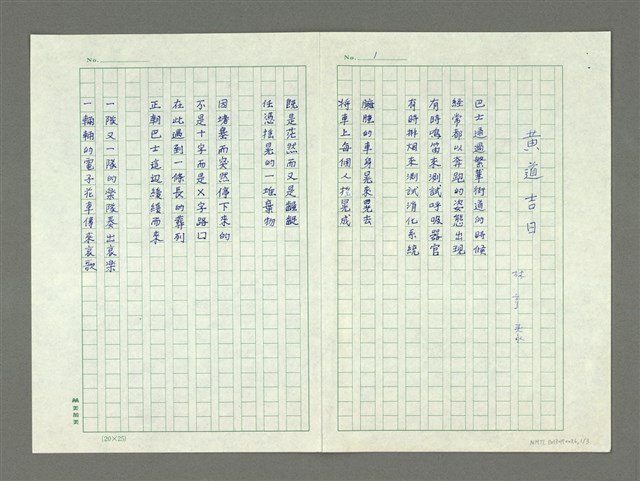 No. 1
黃道吉日
林亨泰
巴士通過繁華街道的時候
經常都以奔跑的姿態出現
有時鳴笛來測試呼吸器官
有時排烟來測試消化系統
臃腫的車身晃來晃去
將車上每個人搖晃成
No.
既是茫然而又是齷齪
任憑搖晃的一堆棄物
因堵塞而突然停下來的
不是十字而是X字路口
在此遇到一條長的葬列
正朝巴士這边緩緩而來
一隊又一隊的樂隊奏出哀樂
一輛輛的電子花車傳來哀歌
(20×25)